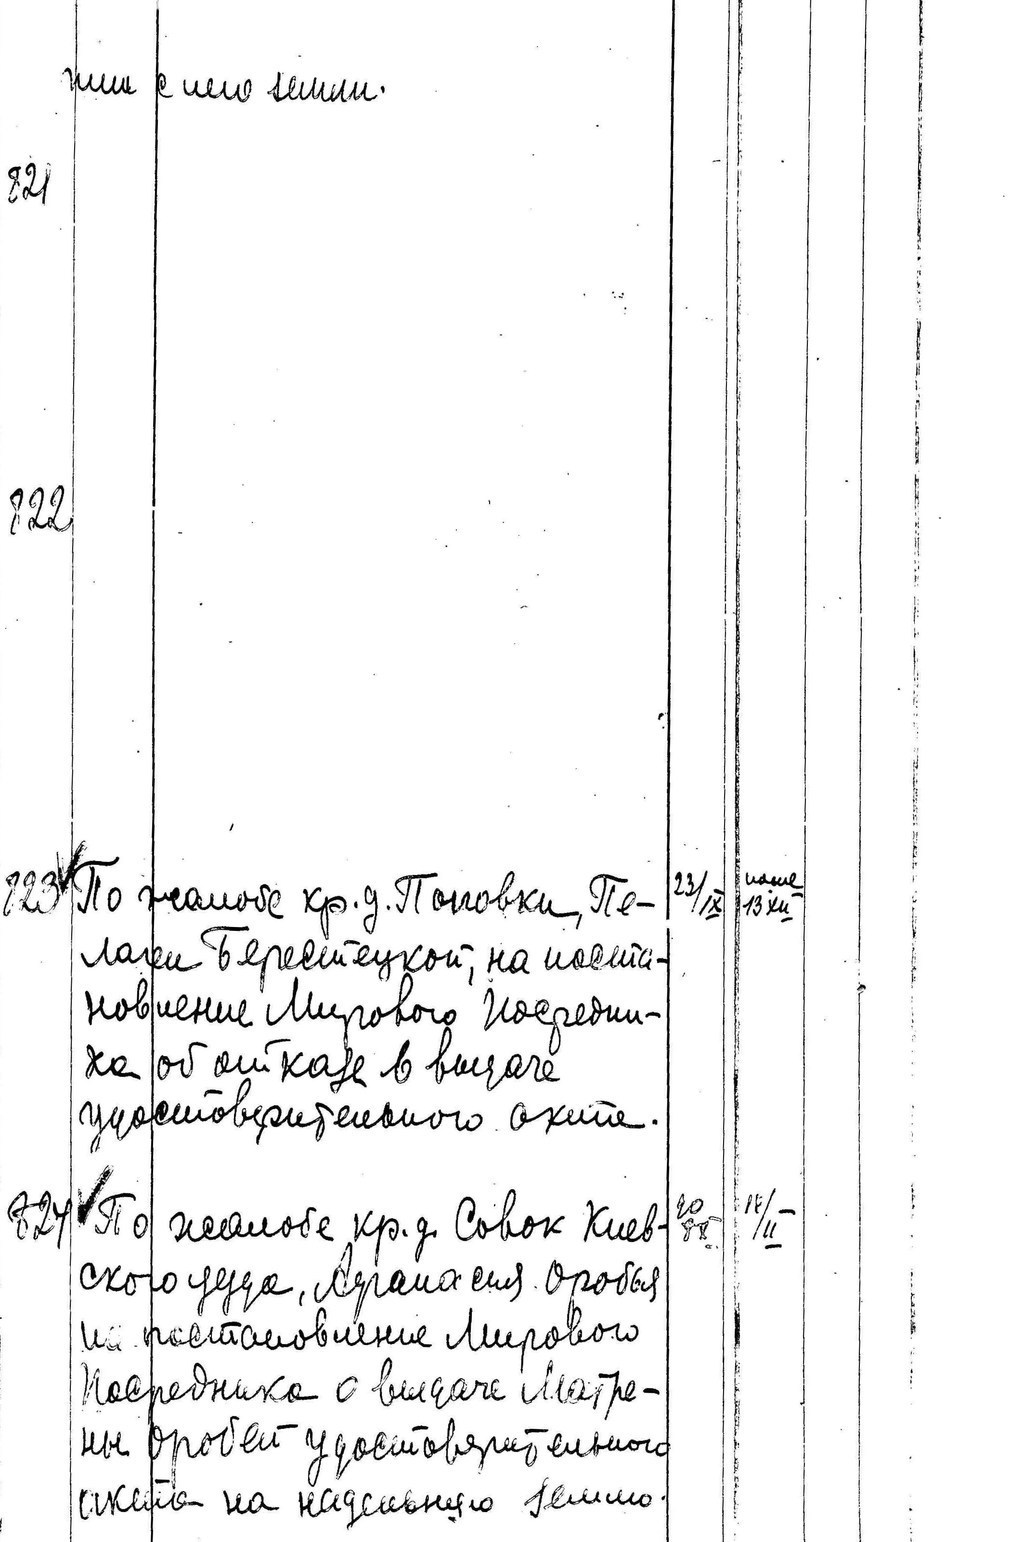 с него земли.
821
822
823 По жалобе кр. д. Поповки, Пе- 23/IX 13 XII
лагеи Берестецкой, на поста-
новление Мирового Посредни-
ка об отказе в выдаче
удостоверительного акта.
824 По жалобе кр. д. Совок Киев- /II
ского уезда, Афанасия Оробья
на постановление Мирового
Посредника о выдаче Матре-
ны Оробей удостоверительного
акта на надельную землю.